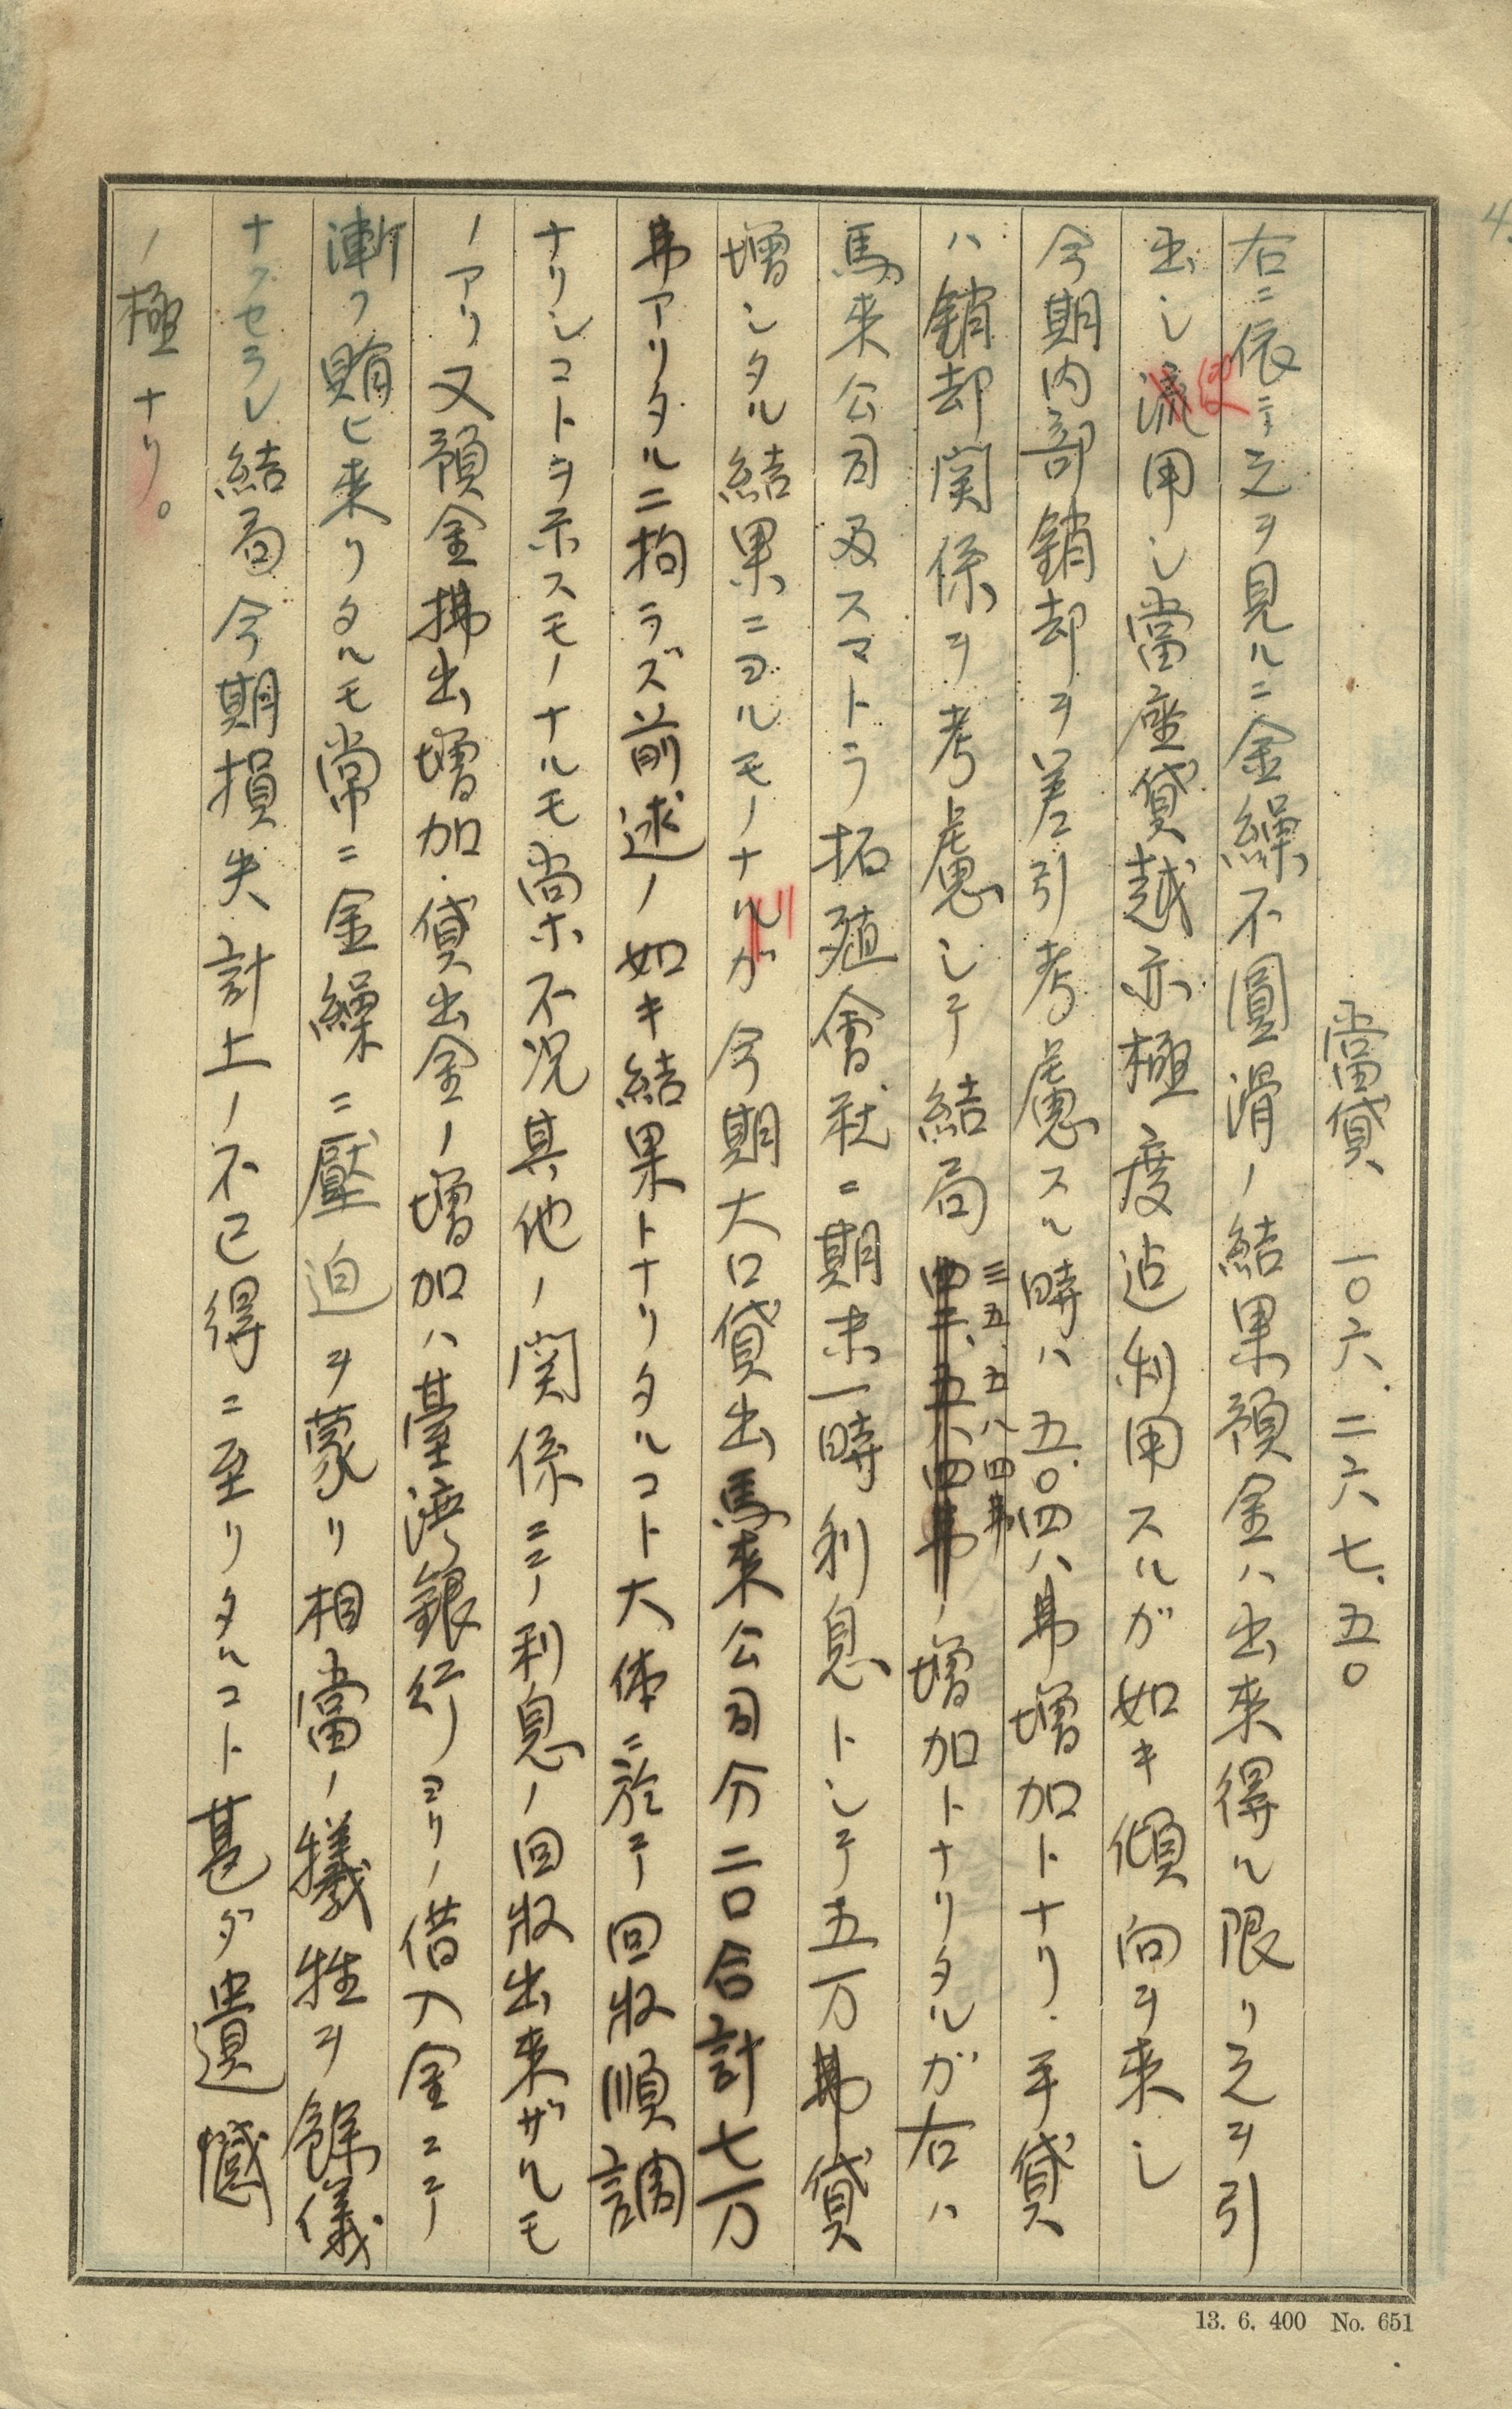 4.
當貸 一〇六.二六七.五〇
右ニ依ニテ之ヲ見ルニ金繰不圓滑ノ結果預金ハ出来得ル限リ之ヲ引
出シ流用シ當座貸越亦極度迠利用スルガ如キ傾向ヲ来シ
今期内部銷却ヲ差引考慮スル時ハ五〇.四八弗増加トナリ.手貸
三五.五八四弗
ハ銷却関係ヲ考慮シテ結局四二、五八四弗ノ増加トナリタルガ右ハ
馬来公司及スマトラ拓殖會社ニ期末一時利息トシテ五万弗貸
増シタル結果ニヨルモノナルガ今期大口貸出馬来公司分二口合計七万
弗アリタルニ拘ラズ前述ノ如キ結果トナリタルコト大体ニ於テ回收順調
ナリシコトヲ示スモノナルモ尚ホ不況其他ノ関係ニテノ利息ノ回收出来ザルモ
ノアリ又預金拂出増加.貸出金ノ増加ハ臺湾銀行ヨリノ借入金ニテ
漸ク賄ヒ来リタルモ常ニ金繰ニ壓迫ヲ蒙リ相當ノ犠牲ヲ餘儀
ナクセラレ結局今期損失計上ノ不已得ニ至リタルコト甚ダ遺憾
ノ極ナリ。
13. 6. 400 No. 651